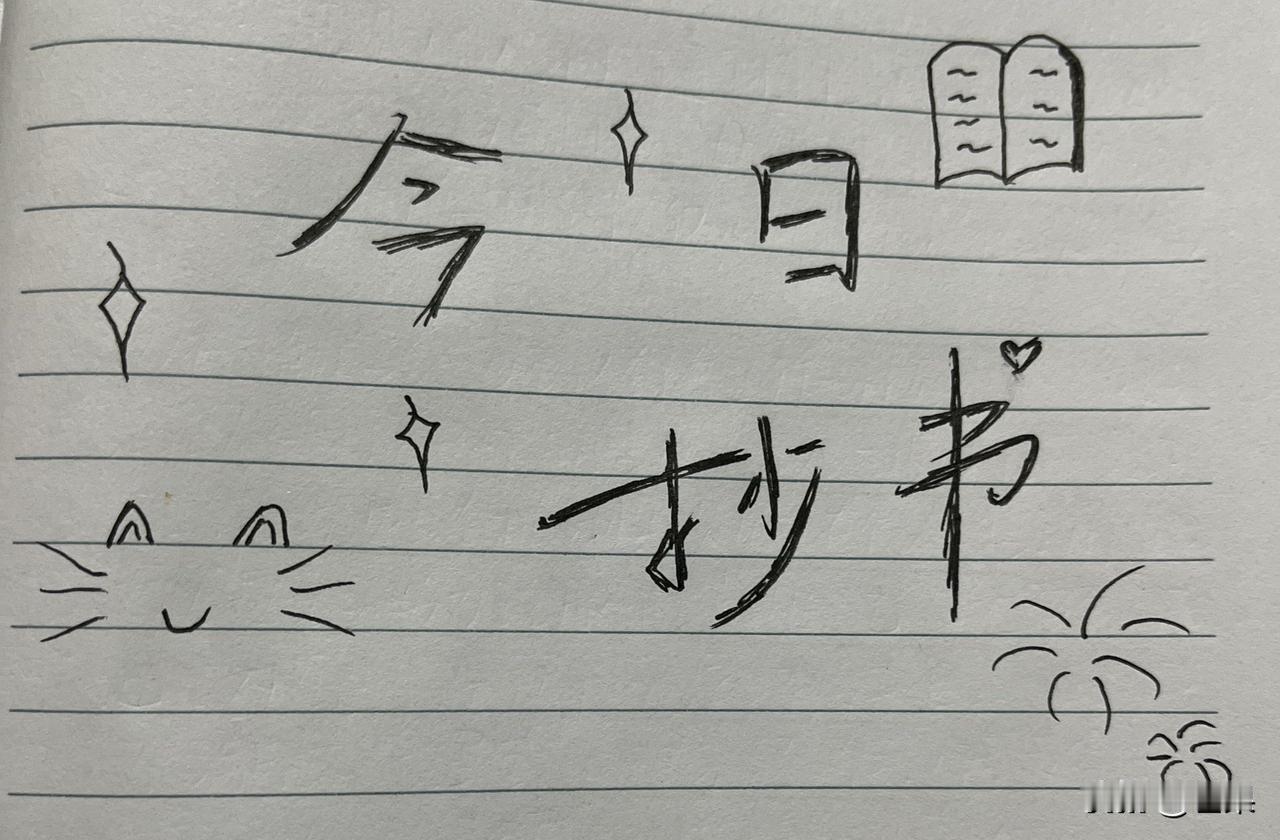 今日
抄书